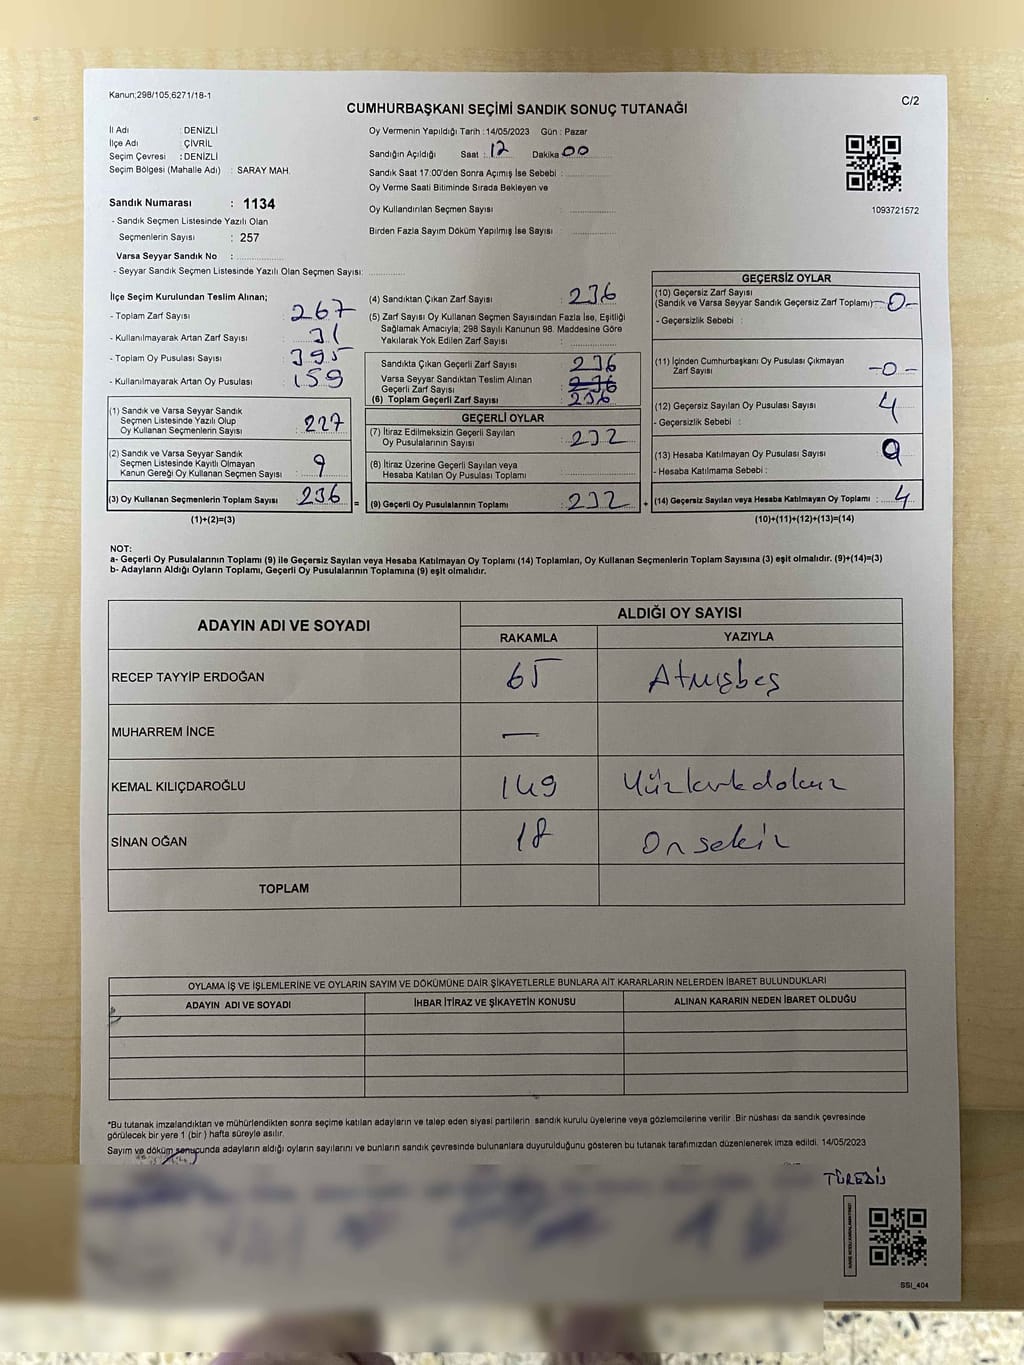 Kanun;298/105,6271/18-1
CUMHURBAŞKANI SEÇİMİ SANDIK SONUÇ TUTANAĞI
C/2
İl Adı : DENİZLİ
İlçe Adı : ÇİVRİL
Seçim Çevresi : DENİZLİ
Seçim Bölgesi (Mahalle Adı) : SARAY MAH.
Sandık Numarası : 1134
- Sandık Seçmen Listesinde Yazılı Olan
Seçmenlerin Sayısı : 257
Varsa Seyyar Sandık No :
- Seyyar Sandık Seçmen Listesinde Yazılı Olan Seçmen Sayısı:
Oy Vermenin Yapıldığı Tarih : 14/05/2023 Gün : Pazar
Sandığın Açıldığı Saat : 12 Dakika 00
Sandık Saat 17:00'den Sonra Açımış İse Sebebi :
Oy Verme Saati Bitiminde Sırada Bekleyen ve
Oy Kullandırılan Seçmen Sayısı :
Birden Fazla Sayım Döküm Yapılmış İse Sayısı :
1093721572
İlçe Seçim Kurulundan Teslim Alınan;
- Toplam Zarf Sayısı : 267
- Kullanılmayarak Artan Zarf Sayısı : 31
- Toplam Oy Pusulası Sayısı : 395
- Kullanılmayarak Artan Oy Pusulası : 159
(1) Sandık ve Varsa Seyyar Sandık
Seçmen Listesinde Yazılı Olup
Oy Kullanan Seçmenlerin Sayısı : 227
(2) Sandık ve Varsa Seyyar Sandık
Seçmen Listesinde Kayıtlı Olmayan
Kanun Gereği Oy Kullanan Seçmen Sayısı : 9
(3) Oy Kullanan Seçmenlerin Toplam Sayısı : 236 =
(1)+(2)=(3)
(4) Sandıktan Çıkan Zarf Sayısı : 236
(5) Zarf Sayısı Oy Kullanan Seçmen Sayısından Fazla İse, Eşitliği
Sağlamak Amacıyla; 298 Sayılı Kanunun 98. Maddesine Göre
Yakılarak Yok Edilen Zarf Sayısı :
Sandıkta Çıkan Geçerli Zarf Sayısı : 236
Varsa Seyyar Sandıktan Teslim Alınan
Geçerli Zarf Sayısı : 236
(6) Toplam Geçerli Zarf Sayısı : 236
GEÇERLİ OYLAR
(7) İtiraz Edilmeksizin Geçerli Sayılan
Oy Pusulalarının Sayısı : 232
(8) İtiraz Üzerine Geçerli Sayılan veya
Hesaba Katılan Oy Pusulası Toplamı :
(9) Geçerli Oy Pusulalarının Toplamı : 232 +
GEÇERSİZ OYLAR
(10) Geçersiz Zarf Sayısı
(Sandık ve Varsa Seyyar Sandık Geçersiz Zarf Toplamı) -0-
- Geçersizlik Sebebi :
(11) İçinden Cumhurbaşkanı Oy Pusulası Çıkmayan
Zarf Sayısı -0-
(12) Geçersiz Sayılan Oy Pusulası Sayısı : 4
- Geçersizlik Sebebi :
(13) Hesaba Katılmayan Oy Pusulası Sayısı :
- Hesaba Katılmama Sebebi :
(14) Geçersiz Sayılan veya Hesaba Katılmayan Oy Toplamı : 4
(10)+(11)+(12)+(13)=(14)
NOT:
a- Geçerli Oy Pusulalarının Toplamı (9) ile Geçersiz Sayılan veya Hesaba Katılmayan Oy Toplamı (14) Toplamları, Oy Kullanan Seçmenlerin Toplam Sayısına (3) eşit olmalıdır. (9)+(14)=(3)
b- Adayların Aldığı Oyların Toplamı, Geçerli Oy Pusulalarının Toplamına (9) eşit olmalıdır.
ADAYIN ADI VE SOYADI ALDIĞI OY SAYISI
RAKAMLA YAZIYLA
RECEP TAYYİP ERDOĞAN 65 Atmışbeş
MUHARREM İNCE —
KEMAL KILIÇDAROĞLU 149 Yüzkırkdokuz
SİNAN OĞAN 18 Onsekiz
TOPLAM
OYLAMA İŞ VE İŞLEMLERİNE VE OYLARIN SAYIM VE DÖKÜMÜNE DAİR ŞİKAYETLERLE BUNLARA AİT KARARLARIN NELERDEN İBARET BULUNDUKLARI
ADAYIN ADI VE SOYADI İHBAR İTİRAZ VE ŞİKAYETİN KONUSU ALINAN KARARIN NEDEN İBARET OLDUĞU
*Bu tutanak imzalandıktan ve mühürlendikten sonra seçime katılan adayların ve talep eden siyasi partilerin sandık kurulu üyelerine veya gözlemcilerine verilir. Bir nüshası da sandık çevresinde
görülecek bir yere 1 (bir) hafta süreyle asılır.
Sayım ve döküm sonucunda adayların aldığı oyların sayılarını ve bunların sandık çevresinde bulunanlara duyurulduğunu gösteren bu tutanak tarafımızdan düzenlenerek imza edildi. 14/05/2023
TÜREDİ
SSI_404